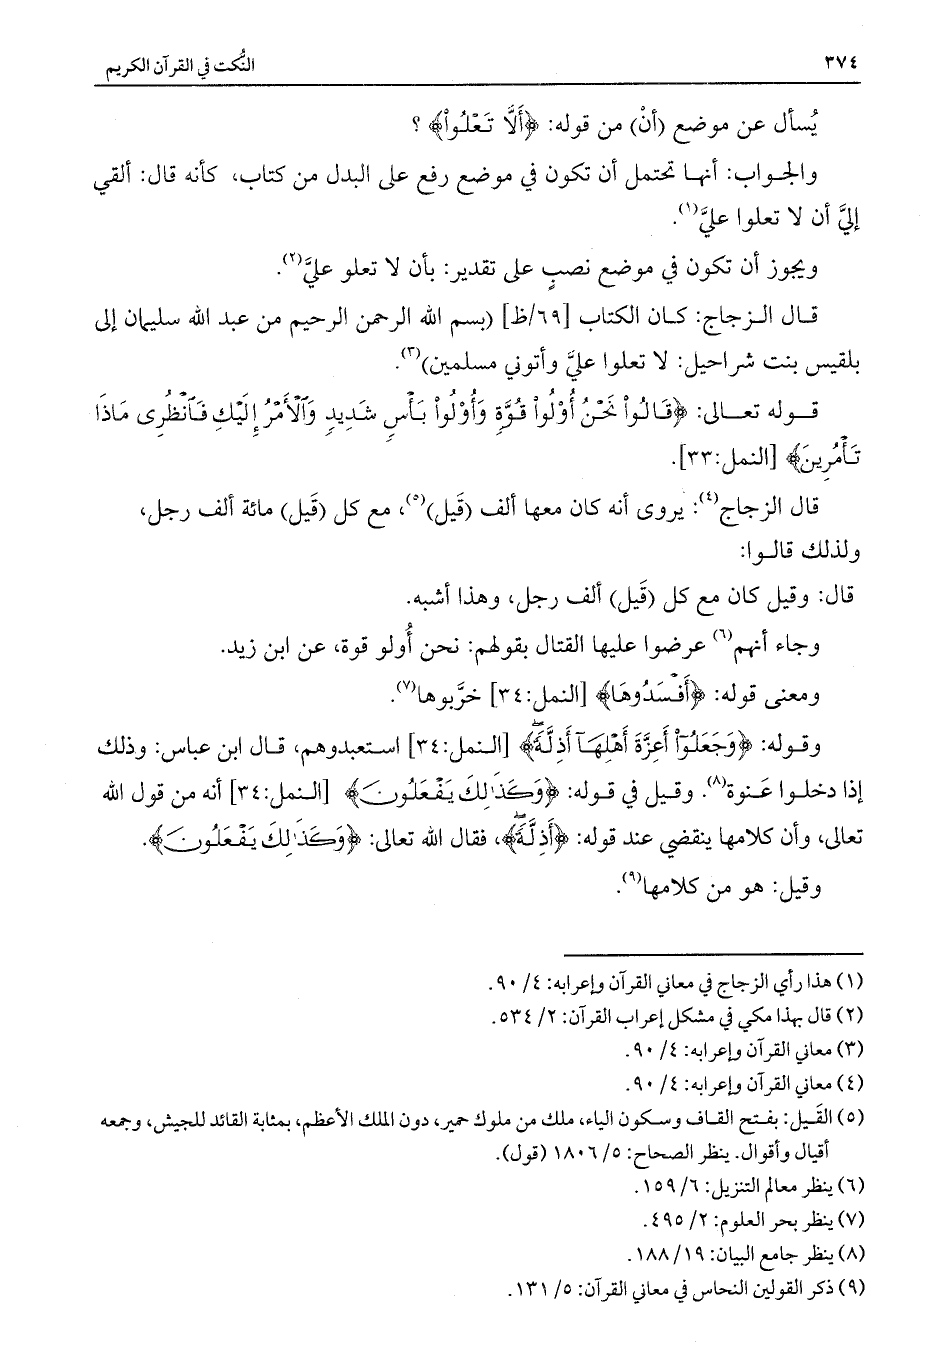 ٣٧٤
النُّكت في القرآن الكريم
يُسأل عن موضع (أنْ) من قوله: ﴿أَلَّا تَعْلُواْ﴾ ؟
والجواب: أنها تحتمل أن تكون في موضع رفع على البدل من كتاب، كأنه قال: ألقي
إليَّ أن لا تعلوا عليَّ(١).
ويجوز أن تكون في موضع نصبٍ على تقدير: بأن لا تعلو عليَّ(٢).
قال الزجاج: كان الكتاب [٦٩/ظ] (بسم الله الرحمن الرحيم من عبد الله سليمان إلى
بلقيس بنت شراحيل: لا تعلوا عليَّ وأتوني مسلمين)(٣).
قوله تعالى: ﴿قَالُواْ نَحْنُ أُوْلُواْ قُوَّةٍ وَأُوْلُواْ بَأْسٍ شَدِيدٍ وَٱلْأَمْرُ إِلَيْكِ فَٱنظُرِى مَاذَا
تَأْمُرِينَ﴾ [النمل:٣٣].
قال الزجاج(٤): يروى أنه كان معها ألف (قَيل)(٥)، مع كل (قَيل) مائة ألف رجل،
ولذلك قالوا:
قال: وقيل كان مع كل (قَيل) ألف رجل، وهذا أشبه.
وجاء أنهم(٦) عرضوا عليها القتال بقولهم: نحن أُولو قوة، عن ابن زيد.
ومعنى قوله: ﴿أَفْسَدُوهَا﴾ [النمل:٣٤] خرَّبوها(٧).
وقوله: ﴿وَجَعَلُوٓاْ أَعِزَّةَ أَهْلِهَآ أَذِلَّةً﴾ [النمل:٣٤] استعبدوهم، قال ابن عباس: وذلك
إذا دخلوا عَنوة(٨). وقيل في قوله: ﴿وَكَذَٰلِكَ يَفْعَلُونَ﴾ [النمل:٣٤] أنه من قول الله
تعالى، وأن كلامها ينقضي عند قوله: ﴿أَذِلَّةً﴾، فقال الله تعالى: ﴿وَكَذَٰلِكَ يَفْعَلُونَ﴾.
وقيل: هو من كلامها(٩).
(١) هذا رأي الزجاج في معاني القرآن وإعرابه: ٤/ ٩٠.
(٢) قال بهذا مكي في مشكل إعراب القرآن: ٢/ ٥٣٤.
(٣) معاني القرآن وإعرابه: ٤/ ٩٠.
(٤) معاني القرآن وإعرابه: ٤/ ٩٠.
(٥) القَيل: بفتح القاف وسكون الياء، ملك من ملوك حمير، دون الملك الأعظم، بمثابة القائد للجيش، وجمعه
أقيال وأقوال. ينظر الصحاح: ٥/ ١٨٠٦ (قول).
(٦) ينظر معالم التنزيل: ٦/ ١٥٩.
(٧) ينظر بحر العلوم: ٢/ ٤٩٥.
(٨) ينظر جامع البيان: ١٩/ ١٨٨.
(٩) ذكر القولين النحاس في معاني القرآن: ٥/ ١٣١.